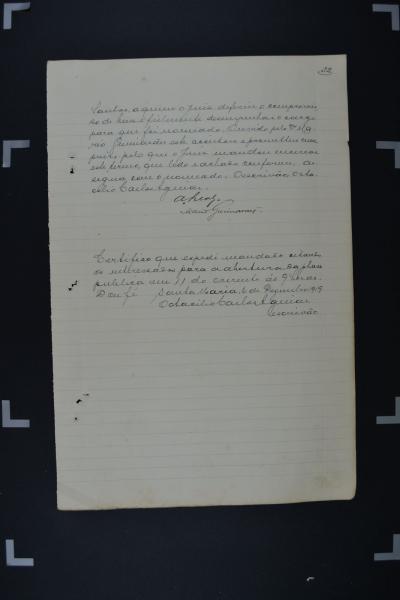 Santos, a quem o Juiz deferiu o compromis-
so de bem e fielmente desempenhar o cargo
para que foi nomeado. Pelo
Guimarães este acceitou e prometteu cum-
prir, pelo que o Juiz mandou lavrar
este termo, que lido e achado conforme, as-
signa com o nomeado. O escrivão Octa-
cilio Carlos Aguiar.
Mario Guimarães.
Certifico que expedi mandado citan-
do os interessados para a abertura
publica em 11 do corrente ás 9 horas.
Dou fé Santa Maria, 6 de Dezembro 919
Octacilio Carlos Aguiar
escrivão